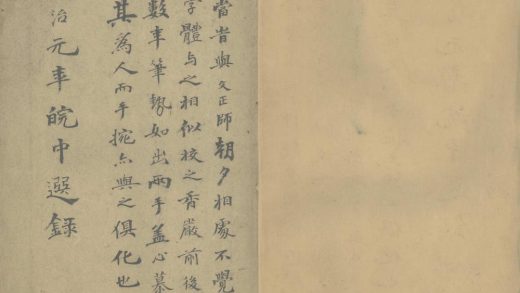 當省與文正師朝夕相處不覺
字體与之相似校之香嚴前後
數年筆勢如出兩手蓋心慕
其為人而手捥亦與之俱化也
治元年皖中選錄